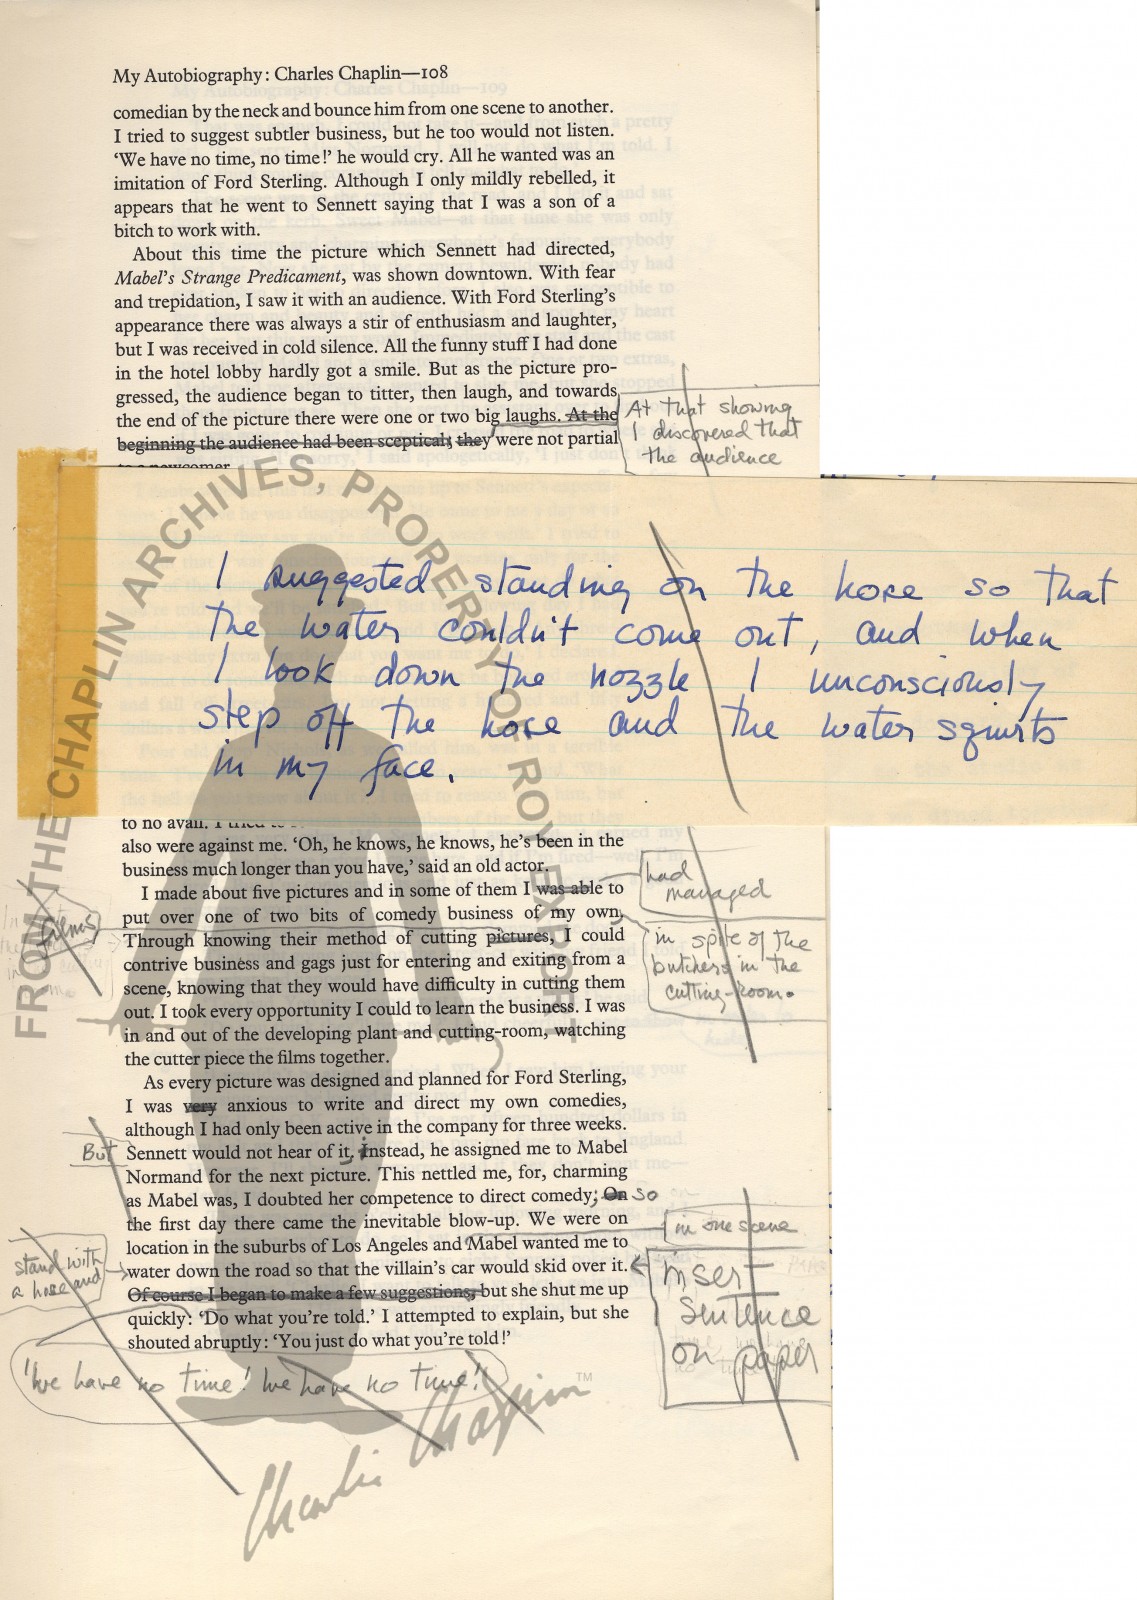 My Autobiography: Charles Chaplin—108
comedian by the neck and bounce him from one scene to another.
I tried to suggest subtler business, but he too would not listen.
‘We have no time, no time!’ he would cry. All he wanted was an
imitation of Ford Sterling. Although I only mildly rebelled, it
appears that he went to Sennett saying that I was a son of a
bitch to work with.
About this time the picture which Sennett had directed,
Mabel's Strange Predicament, was shown downtown. With fear
and trepidation, I saw it with an audience. With Ford Sterling's
appearance there was always a stir of enthusiasm and laughter,
but I was received in cold silence. All the funny stuff I had done
in the hotel lobby hardly got a smile. But as the picture pro-
gressed, the audience began to titter, then laugh, and towards
the end of the picture there were one or two big laughs. At the
beginning the audience had been sceptical; they were not partial
to a newcomer.
At that showing
I discovered that
the audience
I suggested standing on the hose so that
the water couldn't come out, and when
I look down the nozzle I unconsciously
step off the hose and the water squirts
in my face.
to no avail. I tried to
also were against me. ‘Oh, he knows, he knows, he's been in the
business much longer than you have,’ said an old actor.
I made about five pictures and in some of them I was able to
put over one of two bits of comedy business of my own,
Through knowing their method of cutting pictures, I could
contrive business and gags just for entering and exiting from a
scene, knowing that they would have difficulty in cutting them
out. I took every opportunity I could to learn the business. I was
in and out of the developing plant and cutting-room, watching
the cutter piece the films together.
had
managed
in spite of the
butchers in the
cutting-room.
films
As every picture was designed and planned for Ford Sterling,
I was very anxious to write and direct my own comedies,
although I had only been active in the company for three weeks.
But
Sennett would not hear of it, instead, he assigned me to Mabel
Normand for the next picture. This nettled me, for, charming
as Mabel was, I doubted her competence to direct comedy; On so
the first day there came the inevitable blow-up. We were on
in one scene
location in the suburbs of Los Angeles and Mabel wanted me to
stand with
a hose and
water down the road so that the villain's car would skid over it.
insert
sentence
on paper
Of course I began to make a few suggestions, but she shut me up
quickly: ‘Do what you're told.’ I attempted to explain, but she
shouted abruptly: ‘You just do what you're told!’
'We have no time! We have no time!'
FROM THE CHAPLIN ARCHIVES, PROPERTY OF ROY EXPORT
Charlie Chaplin TM